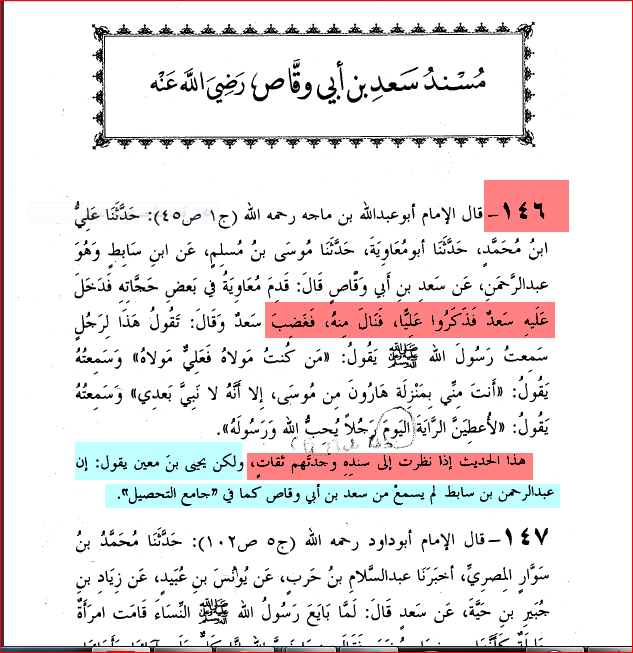 مُسْنَدُ سَعدِ بن أبي وقَّاص، رَضِيَ اللَّه عَنْه
١٤٦- قال الإمام أبوعبدالله بن ماجه رحمه الله (ج١ ص٤٥): حَدَّثَنَا عَلِيُّ
ابنُ مُحَمَّدٍ، حَدَّثَنَا أبومُعَاوِيَةَ، حَدَّثَنَا مُوسَى بنُ مُسلِمٍ، عَن ابنِ سَابِطٍ وَهُوَ
عبدالرَّحمَنِ، عَن سَعدِ بنِ أبي وَقَّاصٍ قَالَ: قَدِمَ مُعَاوِيَةُ في بَعضِ حَجَّاتِهِ فَدَخَلَ
عَلَيهِ سَعدٌ فَذَكَرُوا عَلِيًّا، فَنَالَ مِنهُ، فَغَضِبَ سَعدٌ وَقَالَ: تَقُولُ هَذَا لِرَجُلٍ
سَمِعتُ رَسُولَ الله ﷺ يَقُولُ: «مَن كُنتُ مَولاهُ فَعَلِيٌّ مَولاهُ» وَسَمِعتُهُ
يَقُولُ: «أَنتَ مِنِّي بِمَنْزِلَةِ هَارُونَ مِن مُوسَى، إِلا أَنَّهُ لا نَبِيَّ بَعدِي» وَسَمِعتُهُ
يَقُولُ: «لأُعطِيَنَّ الرَّايَةَ اليَومَ رَجُلاً يُحِبُّ الله وَرَسُولَهُ».
هذا الحديث إذا نظرت إلى سندِهِ وجدتَهم ثقاتٍ، ولكن يحيى بنَ معين يقول: إن
عبدالرحمن بن سابط لم يسمعْ من سعد بن أبي وقاص كما في «جامع التحصيل».
١٤٧- قال الإمام أبوداود رحمه الله (ج٥ ص١٠٢): حَدَّثَنَا مُحَمَّدُ بنُ
سَوَّارٍ المِصرِيُّ، أخبَرَنَا عبدالسَّلامِ بنُ حَربٍ، عَن يُونُسَ بنِ عُبَيدٍ، عَن زِيَادِ بنِ
جُبَيرِ بنِ حَيَّةَ، عَن سَعدٍ قَالَ: لَمَّا بَايَعَ رَسُولُ الله ﷺ النِّسَاءَ قَامَت امرَأَةٌ